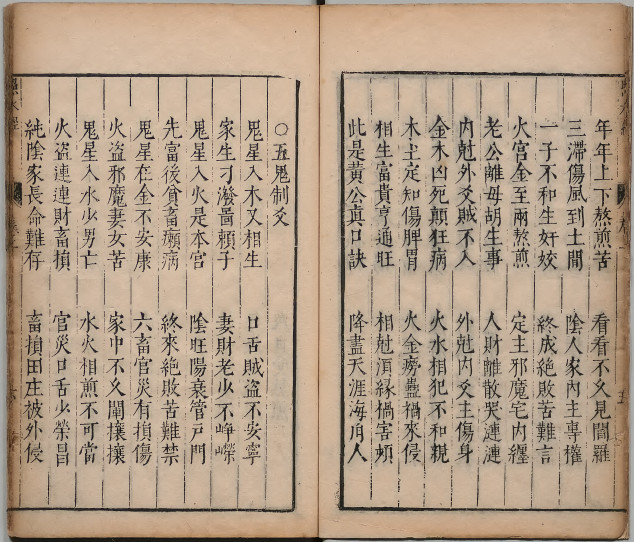 年年上下熬煎苦　看看不久見閻羅
三滯傷風到土間　陰人家內主專權
一子不和生奸狡　終成絶敗苦難言
火宮金至兩熬煎　定主邪魔宅內纒
老公離母胡生事　人財離散哭漣漣
內尅外爻賊不入　外尅內爻主傷身
金木凶死顛狂病　火水相犯不和親
木土定知傷脾胃　火金癆蠱禍來侵
相生富貴亨通旺　相尅須緣禍害頻
此是黄公真口訣　降盡天涯海角人
○五鬼制爻
鬼星入木又相生　口舌賊盗不安寧
家生刁潑嚚頼子　妻財老少不崢嶸
鬼星入火是本宮　陰旺陽衰管戸門
先富後貧畜癩病　終來絶敗苦難禁
鬼星在金不安康　六畜官災有損傷
火盗邪魔妻女苦　家中不久閙攘攘
鬼星入水少男亡　水火相煎不可當
火盗連連財畜損　官災口舌少榮昌
純陰家長命難存　畜損田庄被外侵